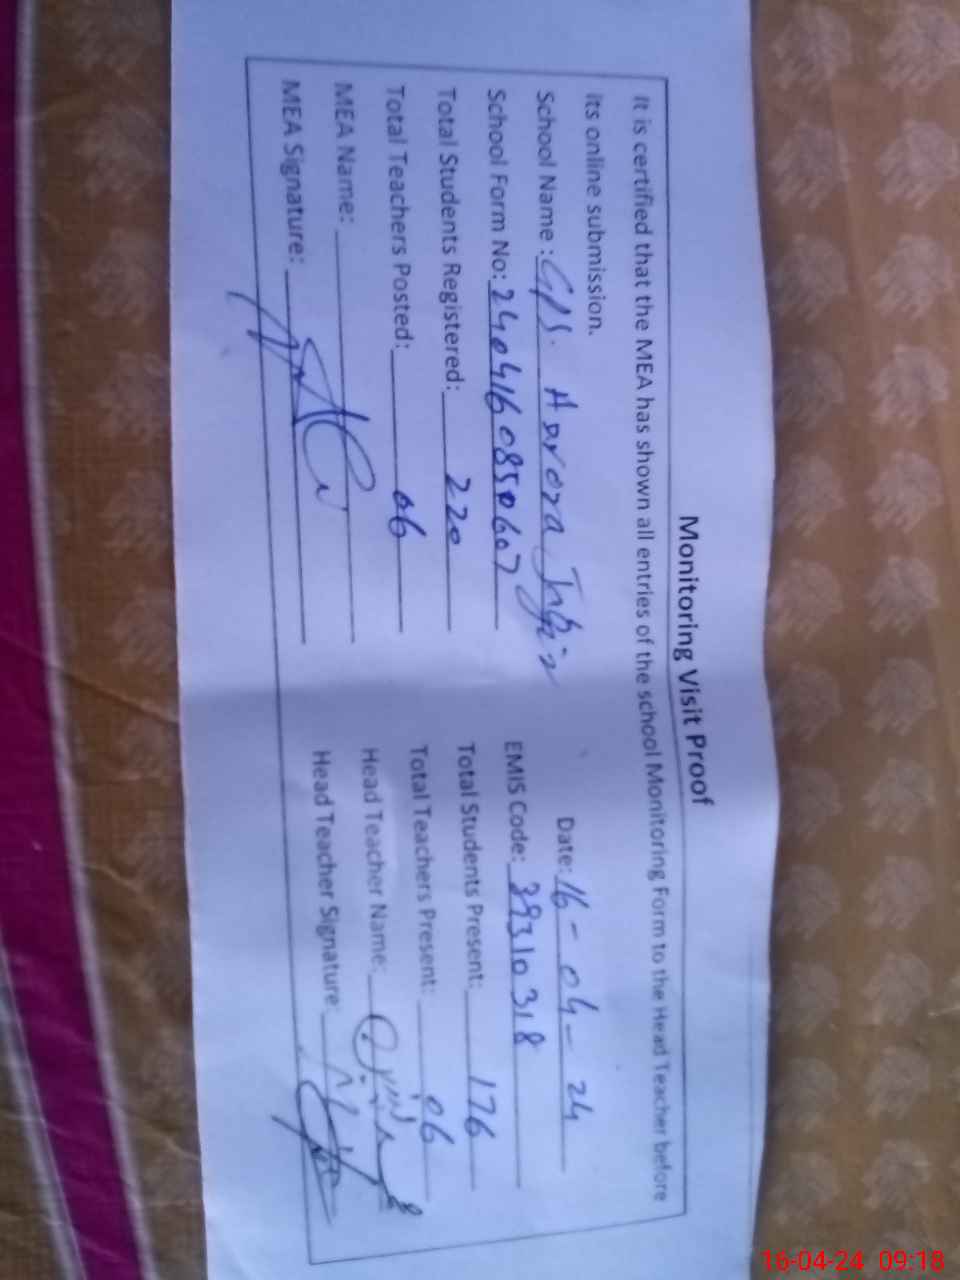 Monitoring Visit Proof
It is certified that the MEA has shown all entries of the school Monitoring Form to the Head Teacher before
its online submission.
Date: 16-04-24
School Name : GPS. Harora
School Form No: 2404160850607
EMIS Code: 39310318
Total Students Registered: 220
Total Students Present: 176
Total Teachers Posted: 06
Total Teachers Present: 06
MEA Name:
Head Teacher Name:
MEA Signature:
Head Teacher Signature:
16-04-24 09:18